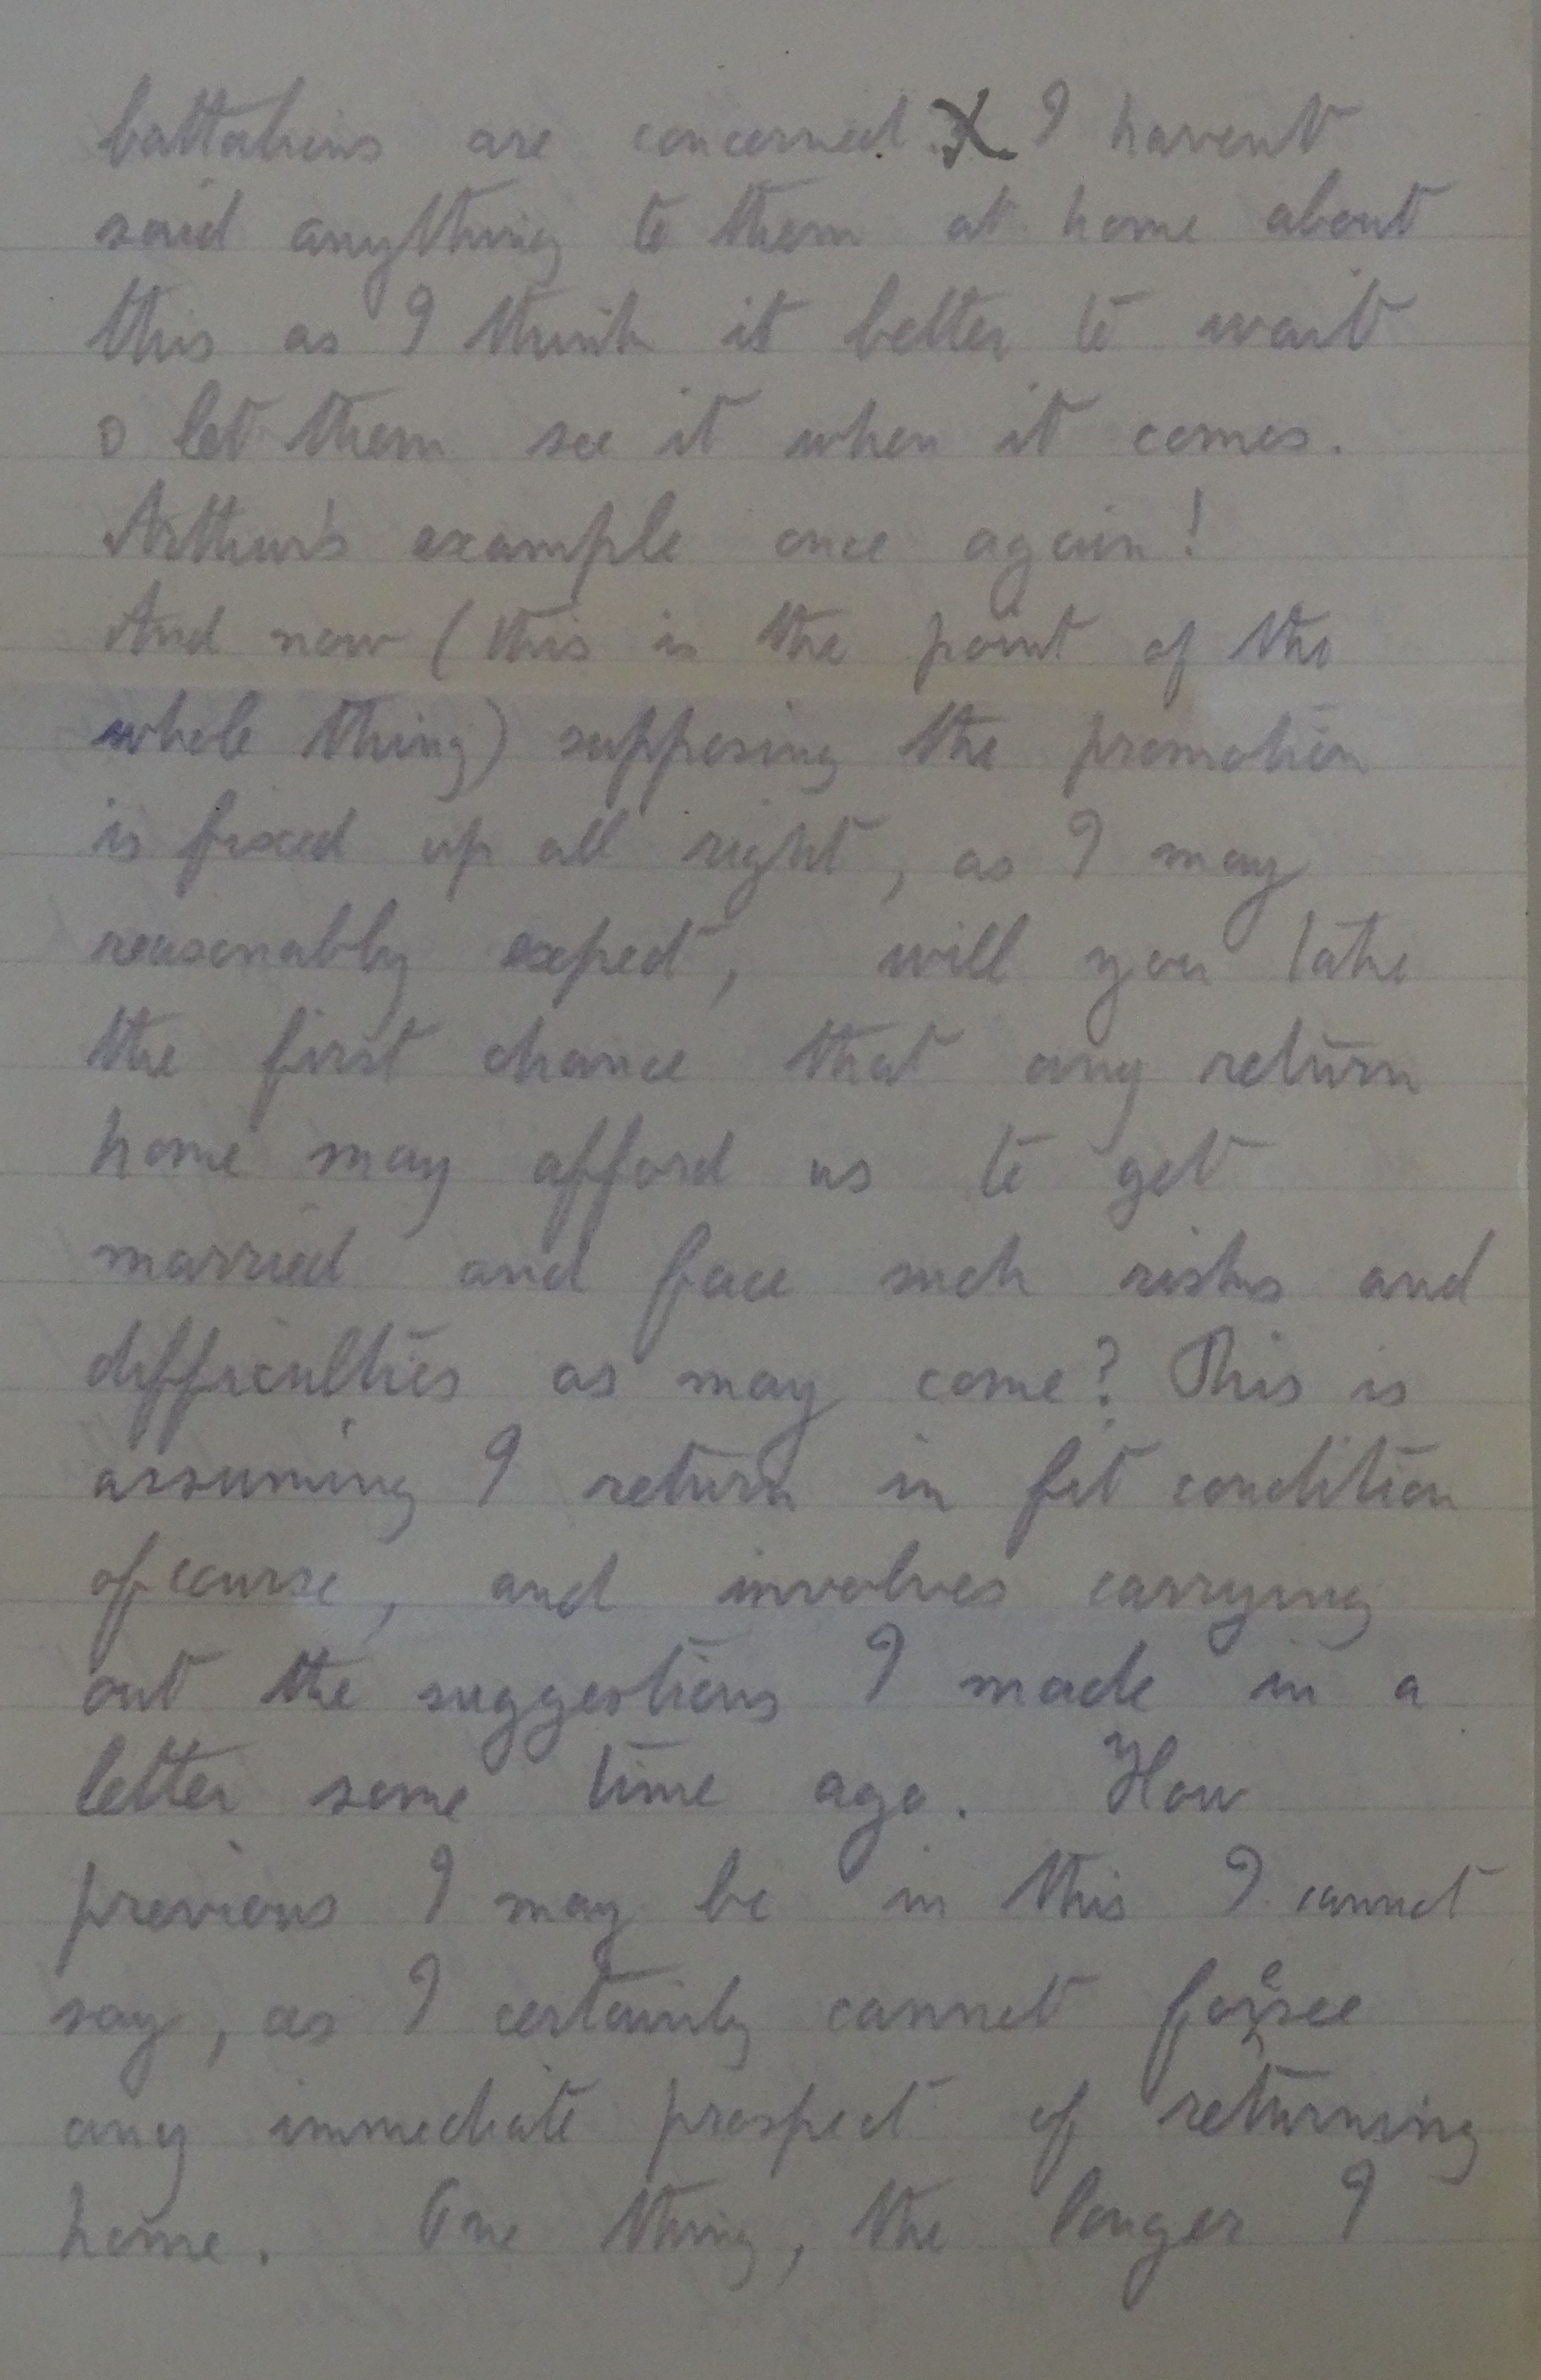 battalions are concerned. X I havent
said anything to them at home about
this as I think it better to wait
o let them see it when it comes.
Arthur's example once again!
And now (this is the point of the
whole thing) supposing the promotion
is fixed up all right, as I may
reasonably expect, will you take
the first chance that any return
home may afford us to get
married and face such risks and
difficulties as may come? This is
assuming I return in fit condition
of course, and involves carrying
out the suggestions I made in a
letter some time ago. How
previous I may be in this I cannot
say, as I certainly cannot foresee
any immediate prospect of returning
home. One thing, the longer I